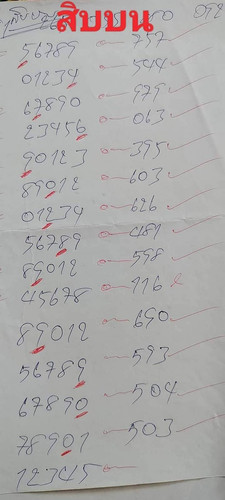 สิบบน
56789 757
01234 544
67890 979
23456 063
90123 395
89012 603
01234 626
56789 481
89012 598
45678 116
89012 690
56789 593
67890 504
78901 503
12345